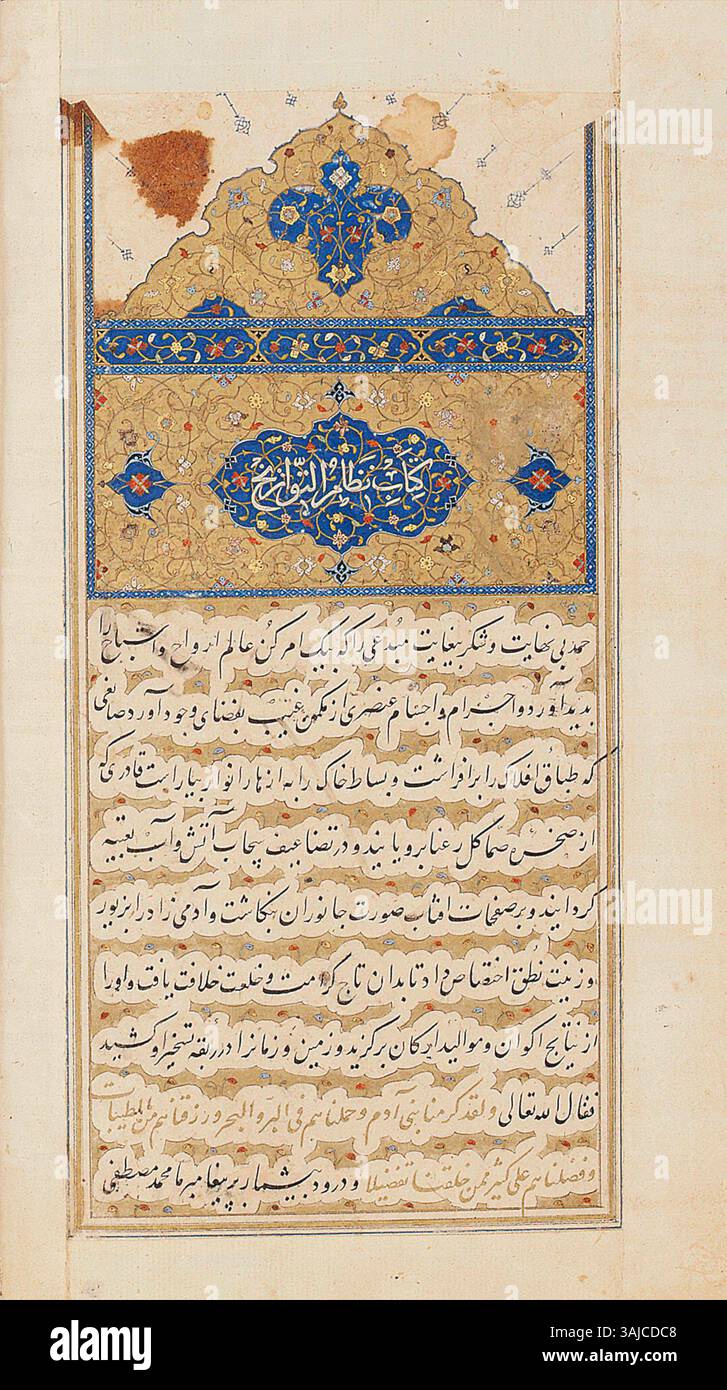 كتاب نظام التواريخ
حمد بی نهایت و شکر بیغایت مبدعی را که بیک امر کن عالم ارواح و اشباح را
بدید آورد و اجرام و اجسام عنصری از مکمن غیب بفضای وجود آورد صانعی
که طباق افلاک را برافراشت و بساط خاک را به ازهار انوار بیاراست قادری که
از صخره صما گل رعنا برویانید و در تضاعیف سحاب آتش و آب تعبیه
گردانید و بر صفحات آفتاب صورت جانوران بنگاشت و آدمی زاد را بزیور
و زینت نطق اختصاص داد تا بدان تاج کرامت و خلعت خلافت یافت و او را
از نتایج اکوان و موالید ارکان برگزید و زمین و زمانرا در ربقه تسخیر او کشید
فقال الله تعالی ولقد کرمنا بنی آدم وحملناهم فی البر والبحر ورزقناهم من الطیبات
وفضلناهم علی کثیر ممن خلقنا تفضیلا و درود بیشمار بر پیغامبر ما محمد مصطفی
alamy
Image ID: 2AJCDC8
www.alamy.com